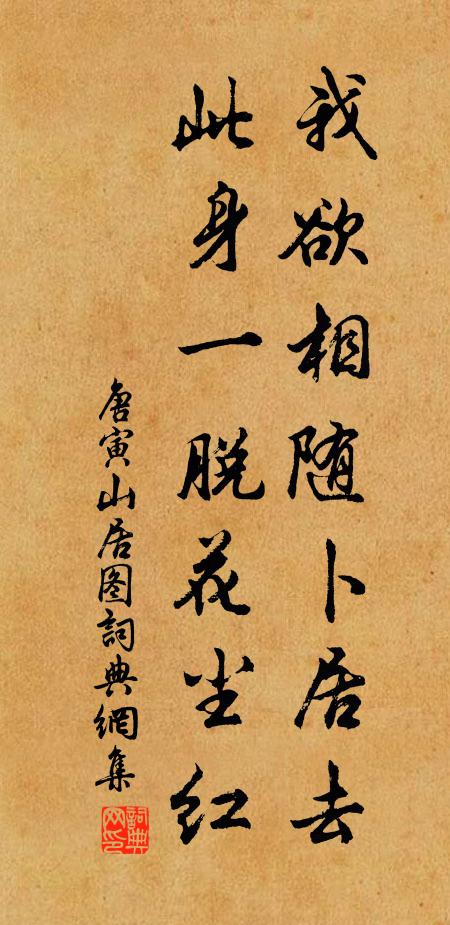 我欲相随卜居去
此身一脱花尘红
唐寅山居图詞典網集
詞典网印